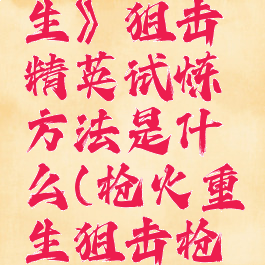 生》狙击
精英试炼
方法是什
么(枪火重
生狙击枪